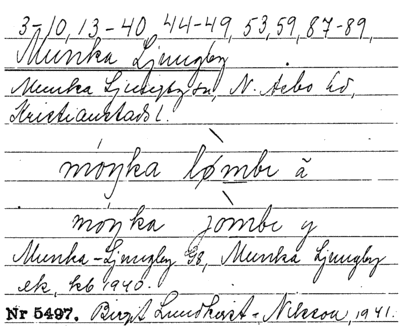 3-10, 13-40, 44-49, 53, 59, 87-89,
Munka Ljungby
Munka Ljungby sn, N. Åsbo hd,
Kristianstads l.
móŋka lø̀mbe ã
móŋka jòmbe y
Munka-Ljungby G8, Munka Ljungby
ek, kb 1940.
Nr 5497. Birgit Lundkvist-Nilsson, 1941.